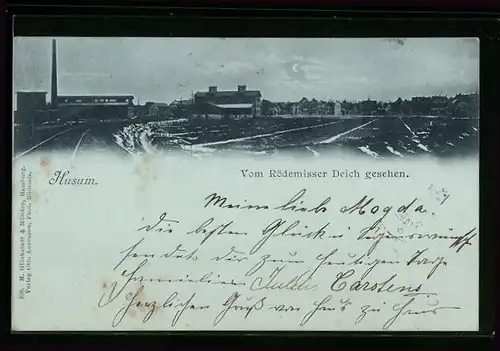 Husum.
Vom Rödemisser Deich gesehen.
Meine liebe Magda.
die besten Glück u Segenswünsche
sendet dir zum heutigen Tage
Familie Julius Carstens
Herzlichen Gruß von Haus zu Haus
595 M. Glückstadt & Münden, Hamburg.
Verlag Otto